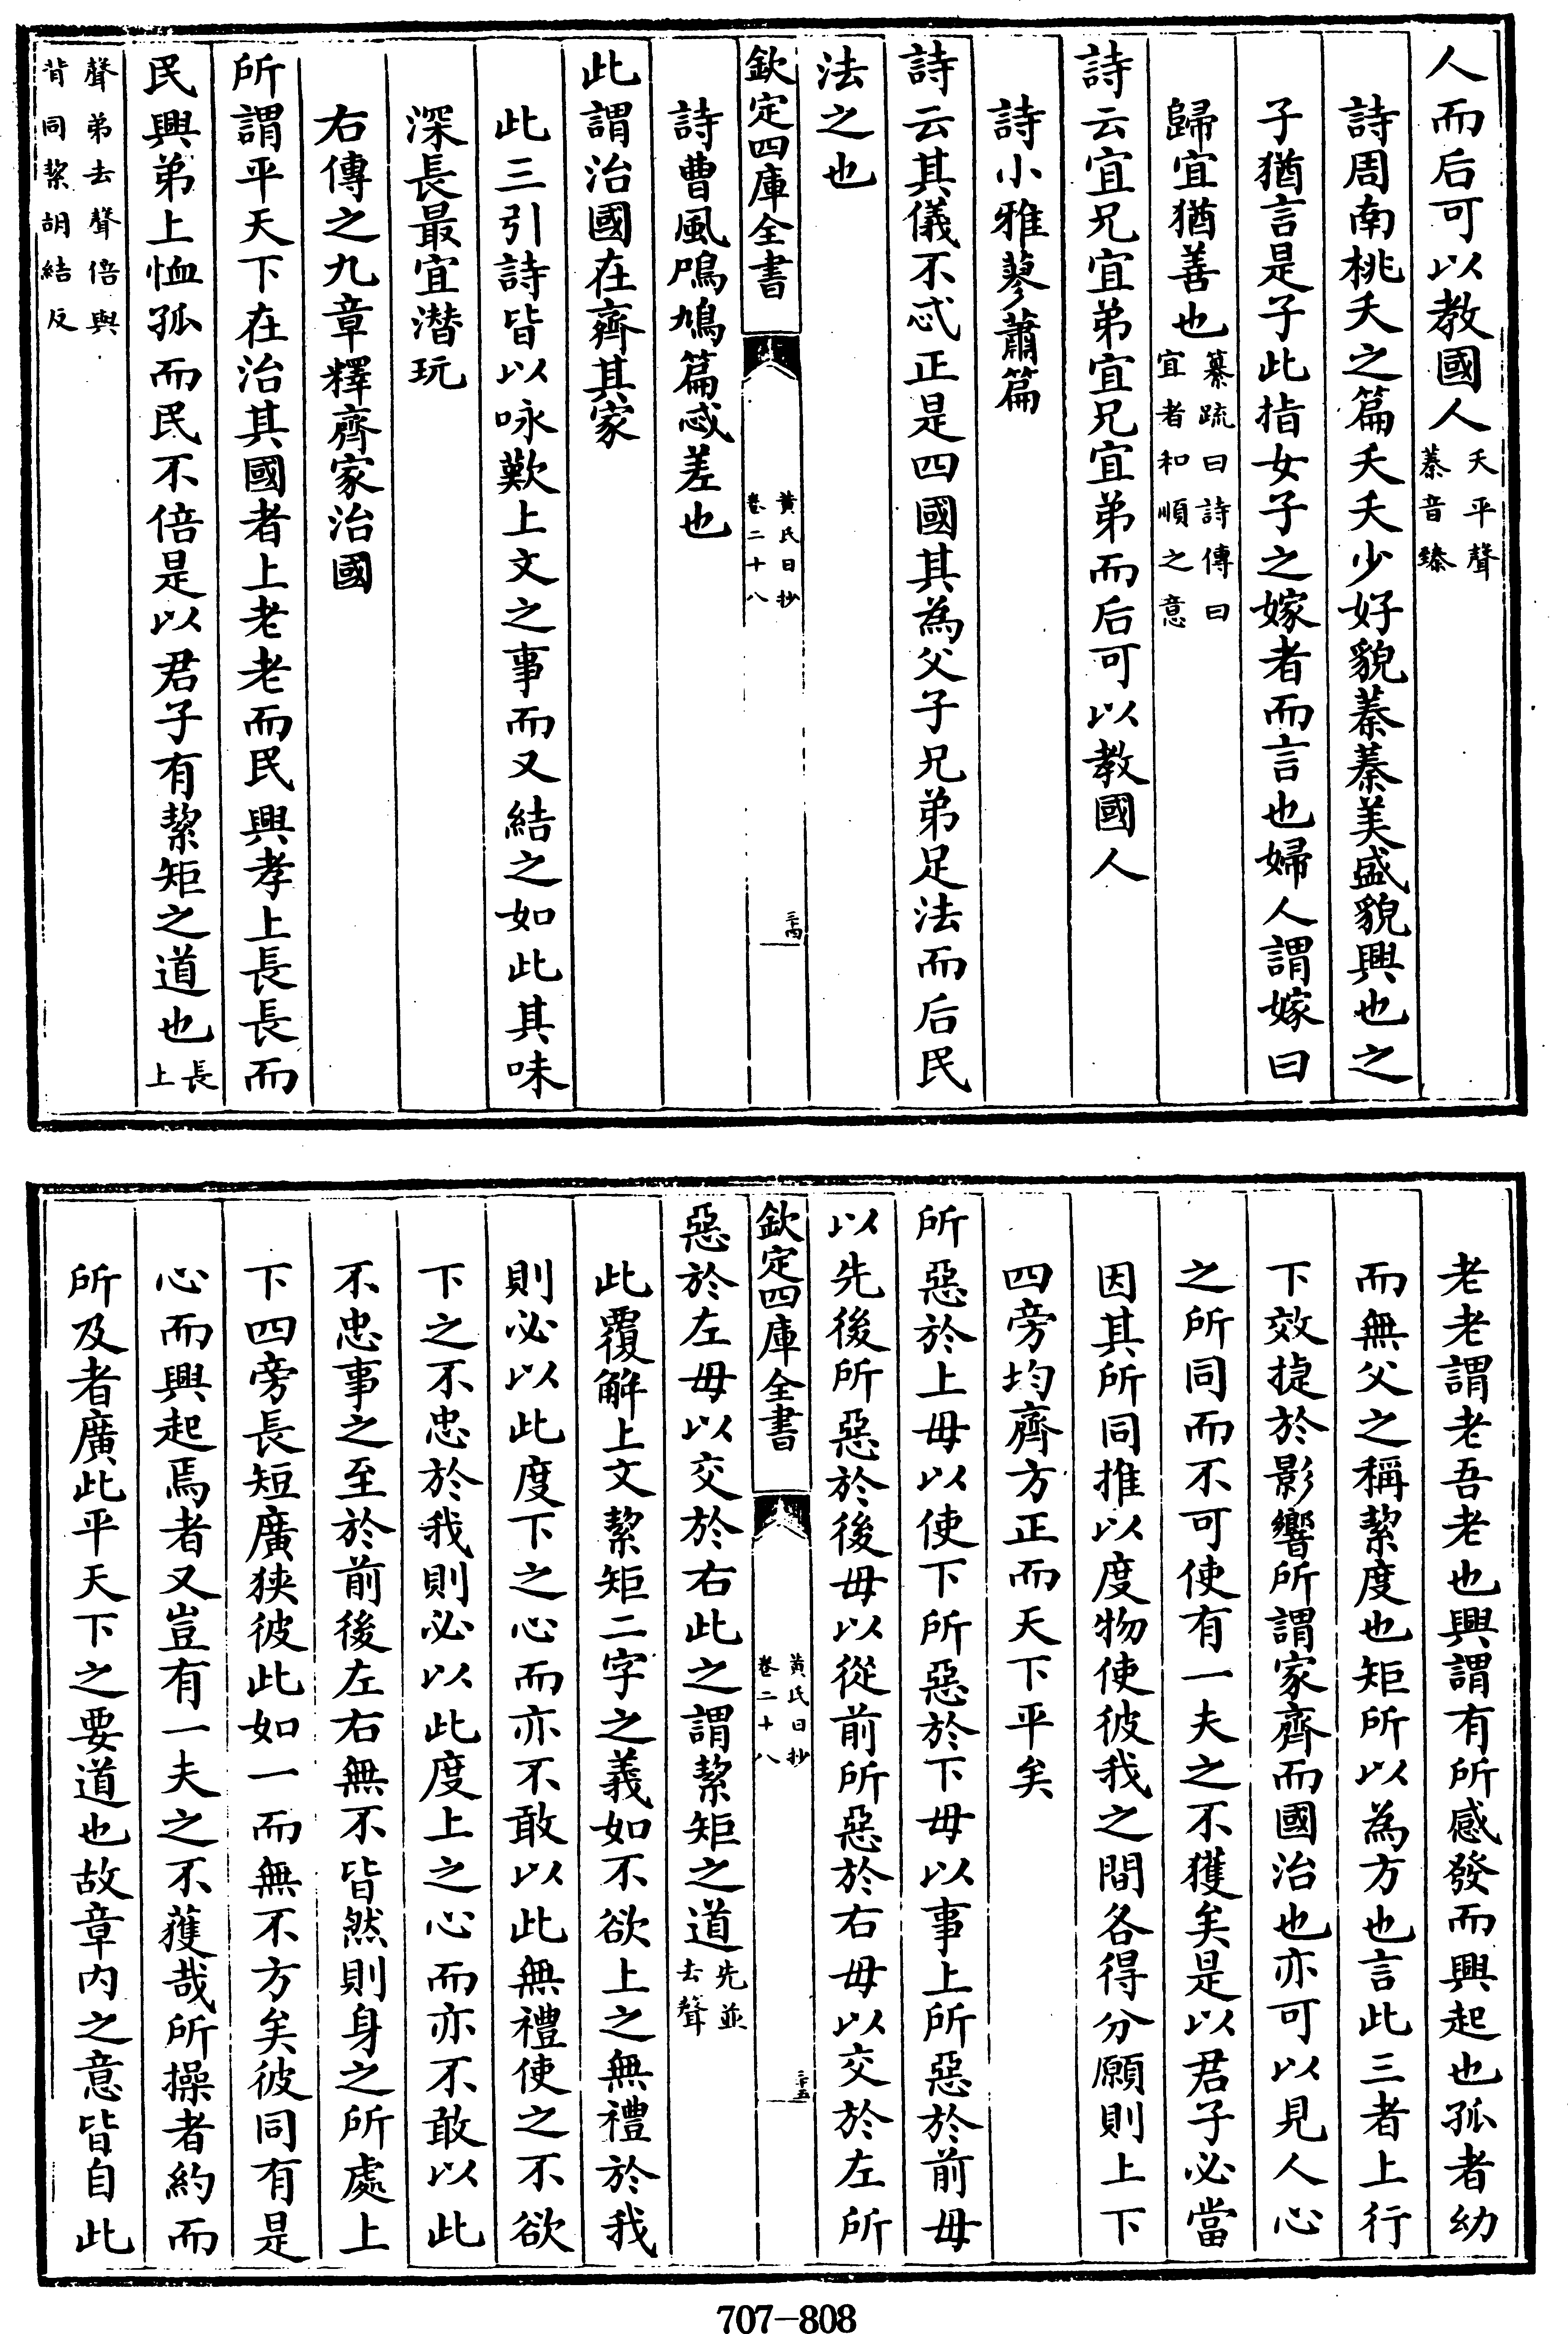 人而后可以教國人夭平聲蓁音臻
詩周南桃夭之篇夭夭少好貌蓁蓁美盛貌興也之
子猶言是子此指女子之嫁者而言也婦人謂嫁曰
歸宜猶善也纂疏曰詩傳曰宜者和順之意
詩云宜兄宜弟宜兄宜弟而后可以教國人
詩小雅蓼蕭篇
詩云其儀不忒正是四國其為父子兄弟足法而后民
法之也
欽定四庫全書 黃氏日抄卷二十八 三十四
詩曹風鳲鳩篇忒差也
此謂治國在齊其家
此三引詩皆以咏歎上文之事而又結之如此其味
深長最宜潜玩
右傳之九章釋齊家治國
所謂平天下在治其國者上老老而民興孝上長長而
民興弟上恤孤而民不倍是以君子有絜矩之道也長上
聲弟去聲倍與背同絜胡結反
老老謂老吾老也興謂有所感發而興起也孤者幼
而無父之稱絜度也矩所以為方也言此三者上行
下效捷於影響所謂家齊而國治也亦可以見人心
之所同而不可使有一夫之不獲矣是以君子必當
因其所同推以度物使彼我之間各得分願則上下
四旁均齊方正而天下平矣
所惡於上毋以使下所惡於下毋以事上所惡於前毋
以先後所惡於後毋以從前所惡於右毋以交於左所
欽定四庫全書 黃氏日抄卷二十八 三十五
惡於左毋以交於右此之謂絜矩之道先並去聲
此覆解上文絜矩二字之義如不欲上之無禮於我
則必以此度下之心而亦不敢以此無禮使之不欲
下之不忠於我則必以此度上之心而亦不敢以此
不忠事之至於前後左右無不皆然則身之所處上
下四旁長短廣狹彼此如一而無不方矣彼同有是
心而興起焉者又豈有一夫之不獲哉所操者約而
所及者廣此平天下之要道也故章内之意皆自此
707-808